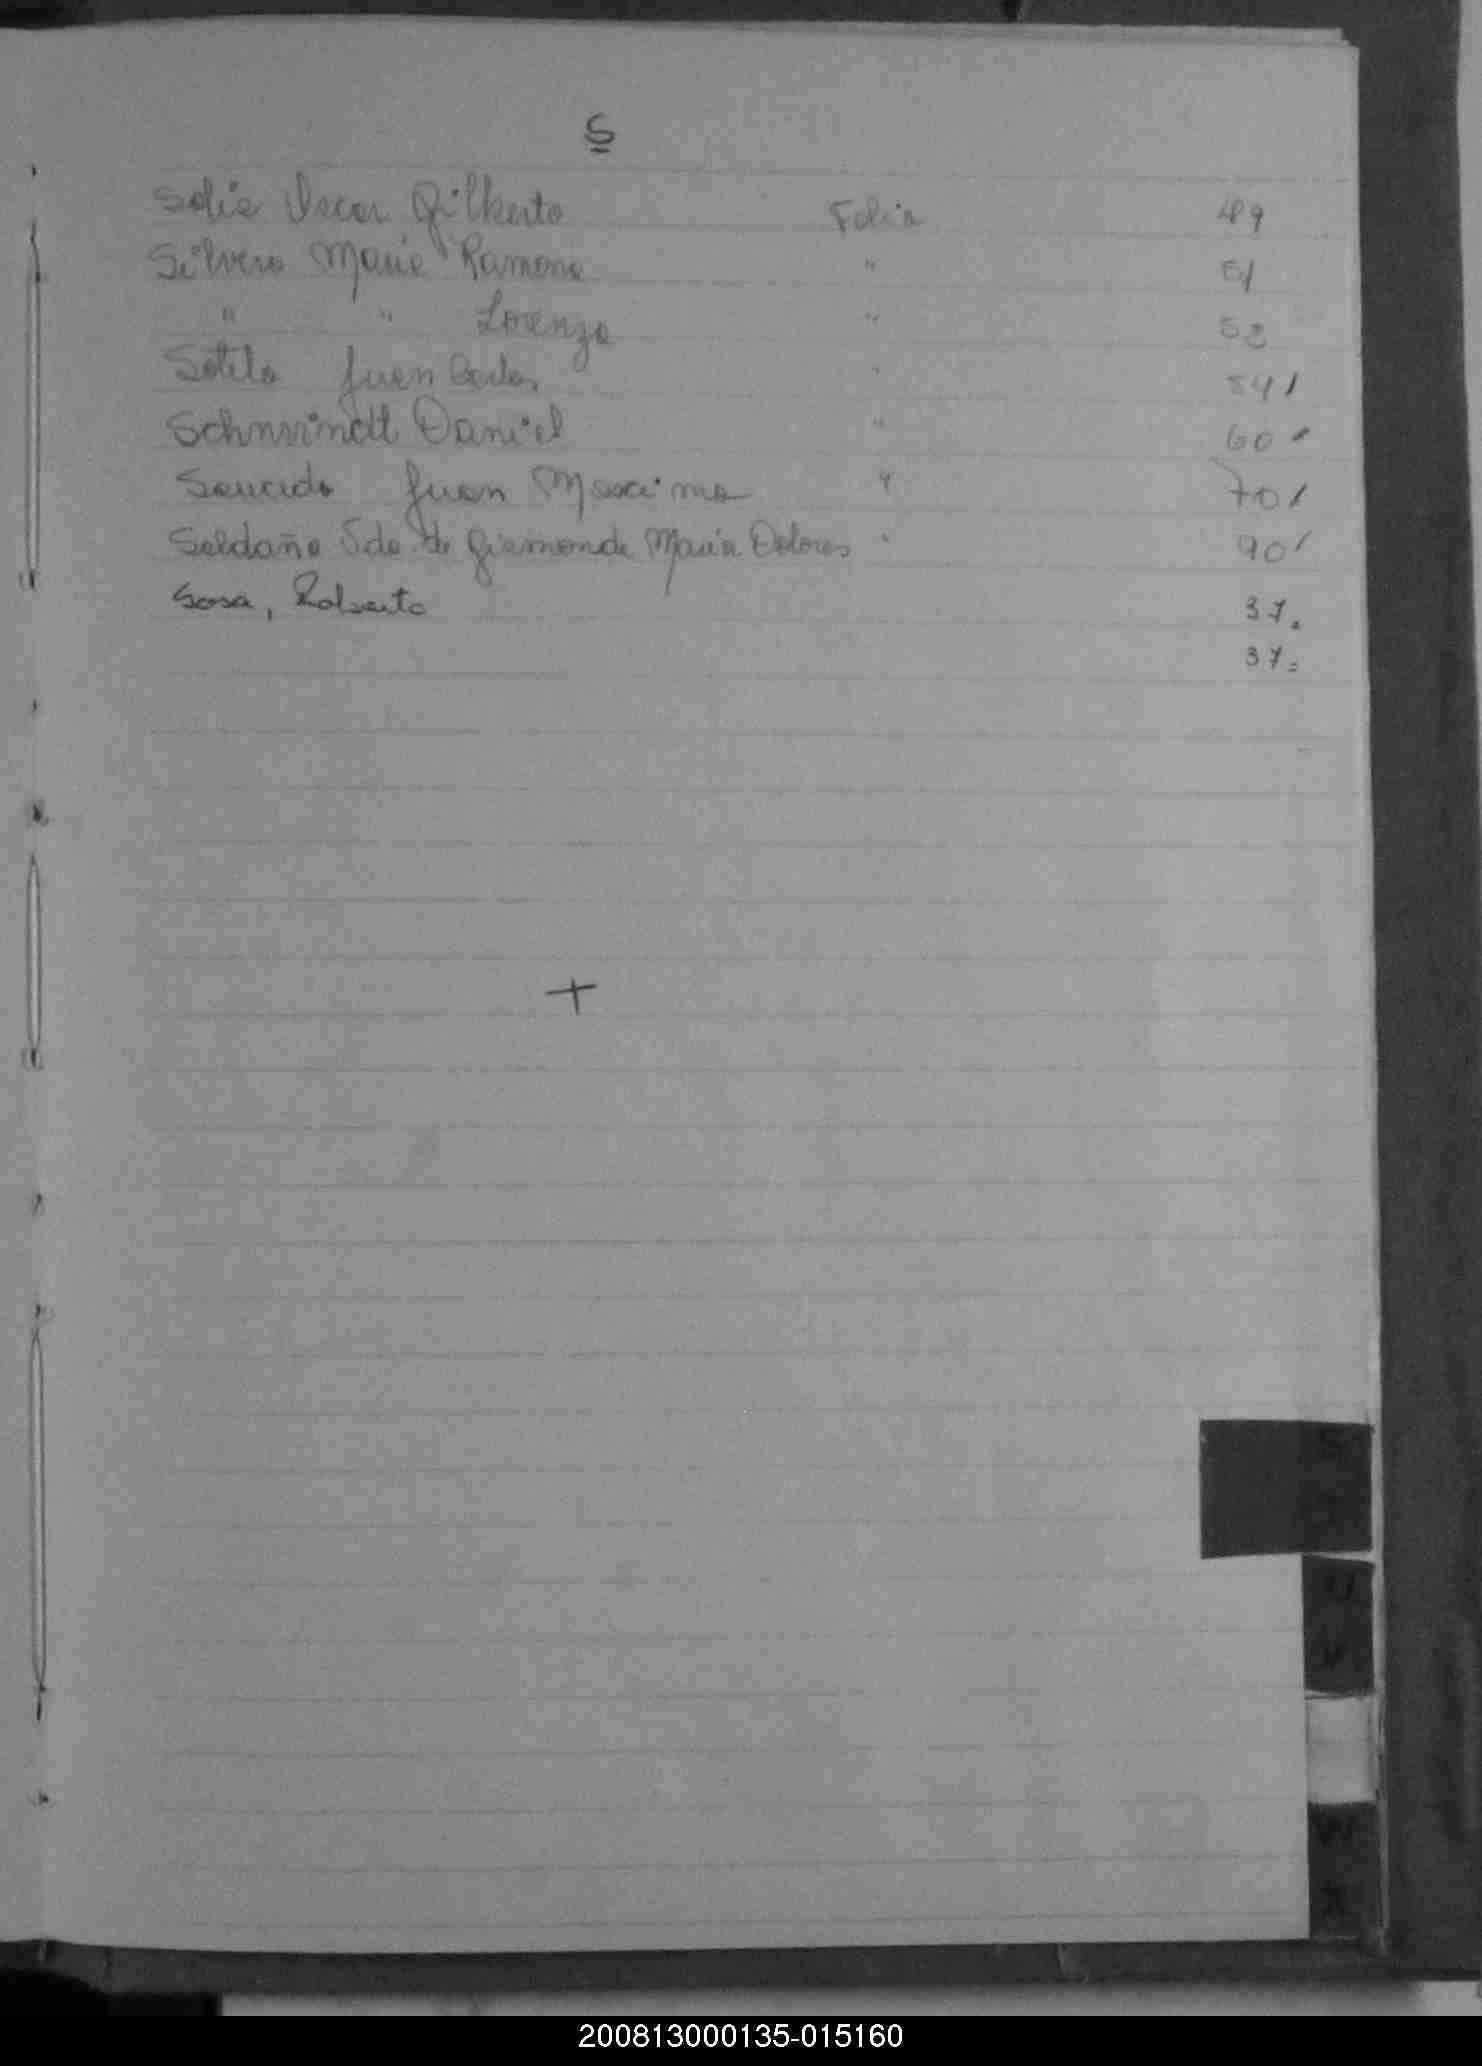 S
Solis Oscar Gilberto Folio 49
Silvero Maria Ramona " 51
" " Lorenza " 53
Sotelo Juan Carlos " 54/
Schnvindt Daniel " 60
Saucedo Juan Maximo " 70/
Saldaño Vda. de Gismonde Maria Dolores " 90/
Sosa, Roberto 37.
37.
S
U
V
W
X
200813000135-015160